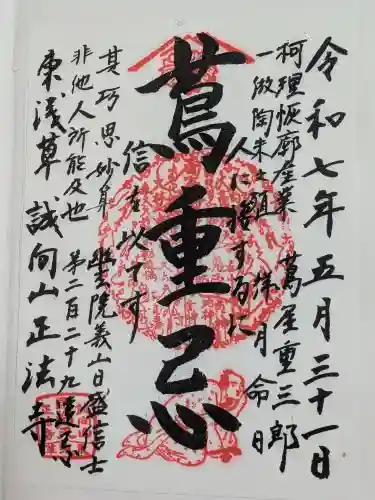 令和七年五月三十一日
柯理恢廓産業 蔦屋重三郎
一倣陶朱之殖 祥月命日
人に接するに
蔦重忌
信を以てす
其巧思妙算 義山日盛信士
非他人所能及也 第二百二十九遠忌
東浅草 誠向山正法寺